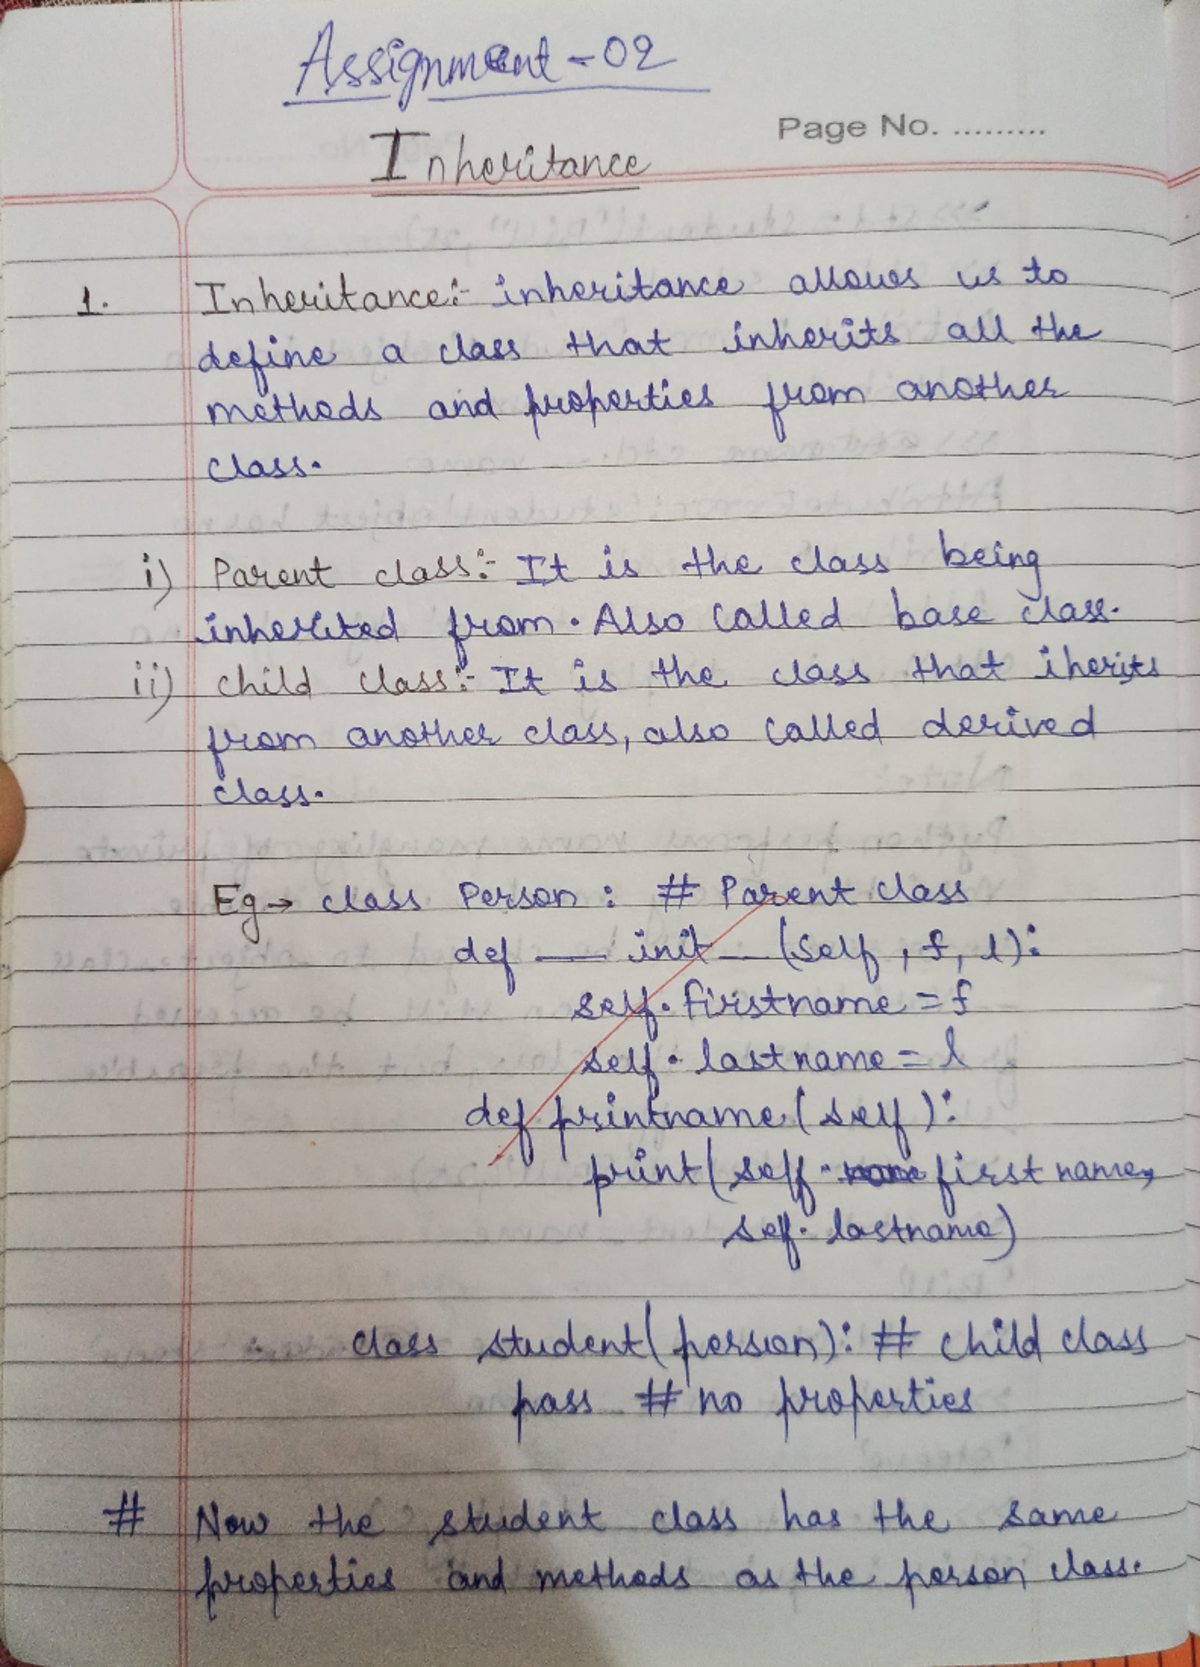 Assignment-02
Page No. .........
Inheritance
1. Inheritance:- inheritance allows us to
define a class that inherits all the
methods and properties from another
class.
i) Parent class:- It is the class being
inherited from. Also called base class.
ii) child class:- It is the class that iherits
from another class, also called derived
class.
Eg→ class Person : # Parent class
def __ init __ (self, f, l):
self.firstname = f
self.lastname = l
def printname(self):
print(self.firstname,
self.lastname)
class student(person): # child class
pass # no properties
# Now the student class has the same
properties and methods as the person class.